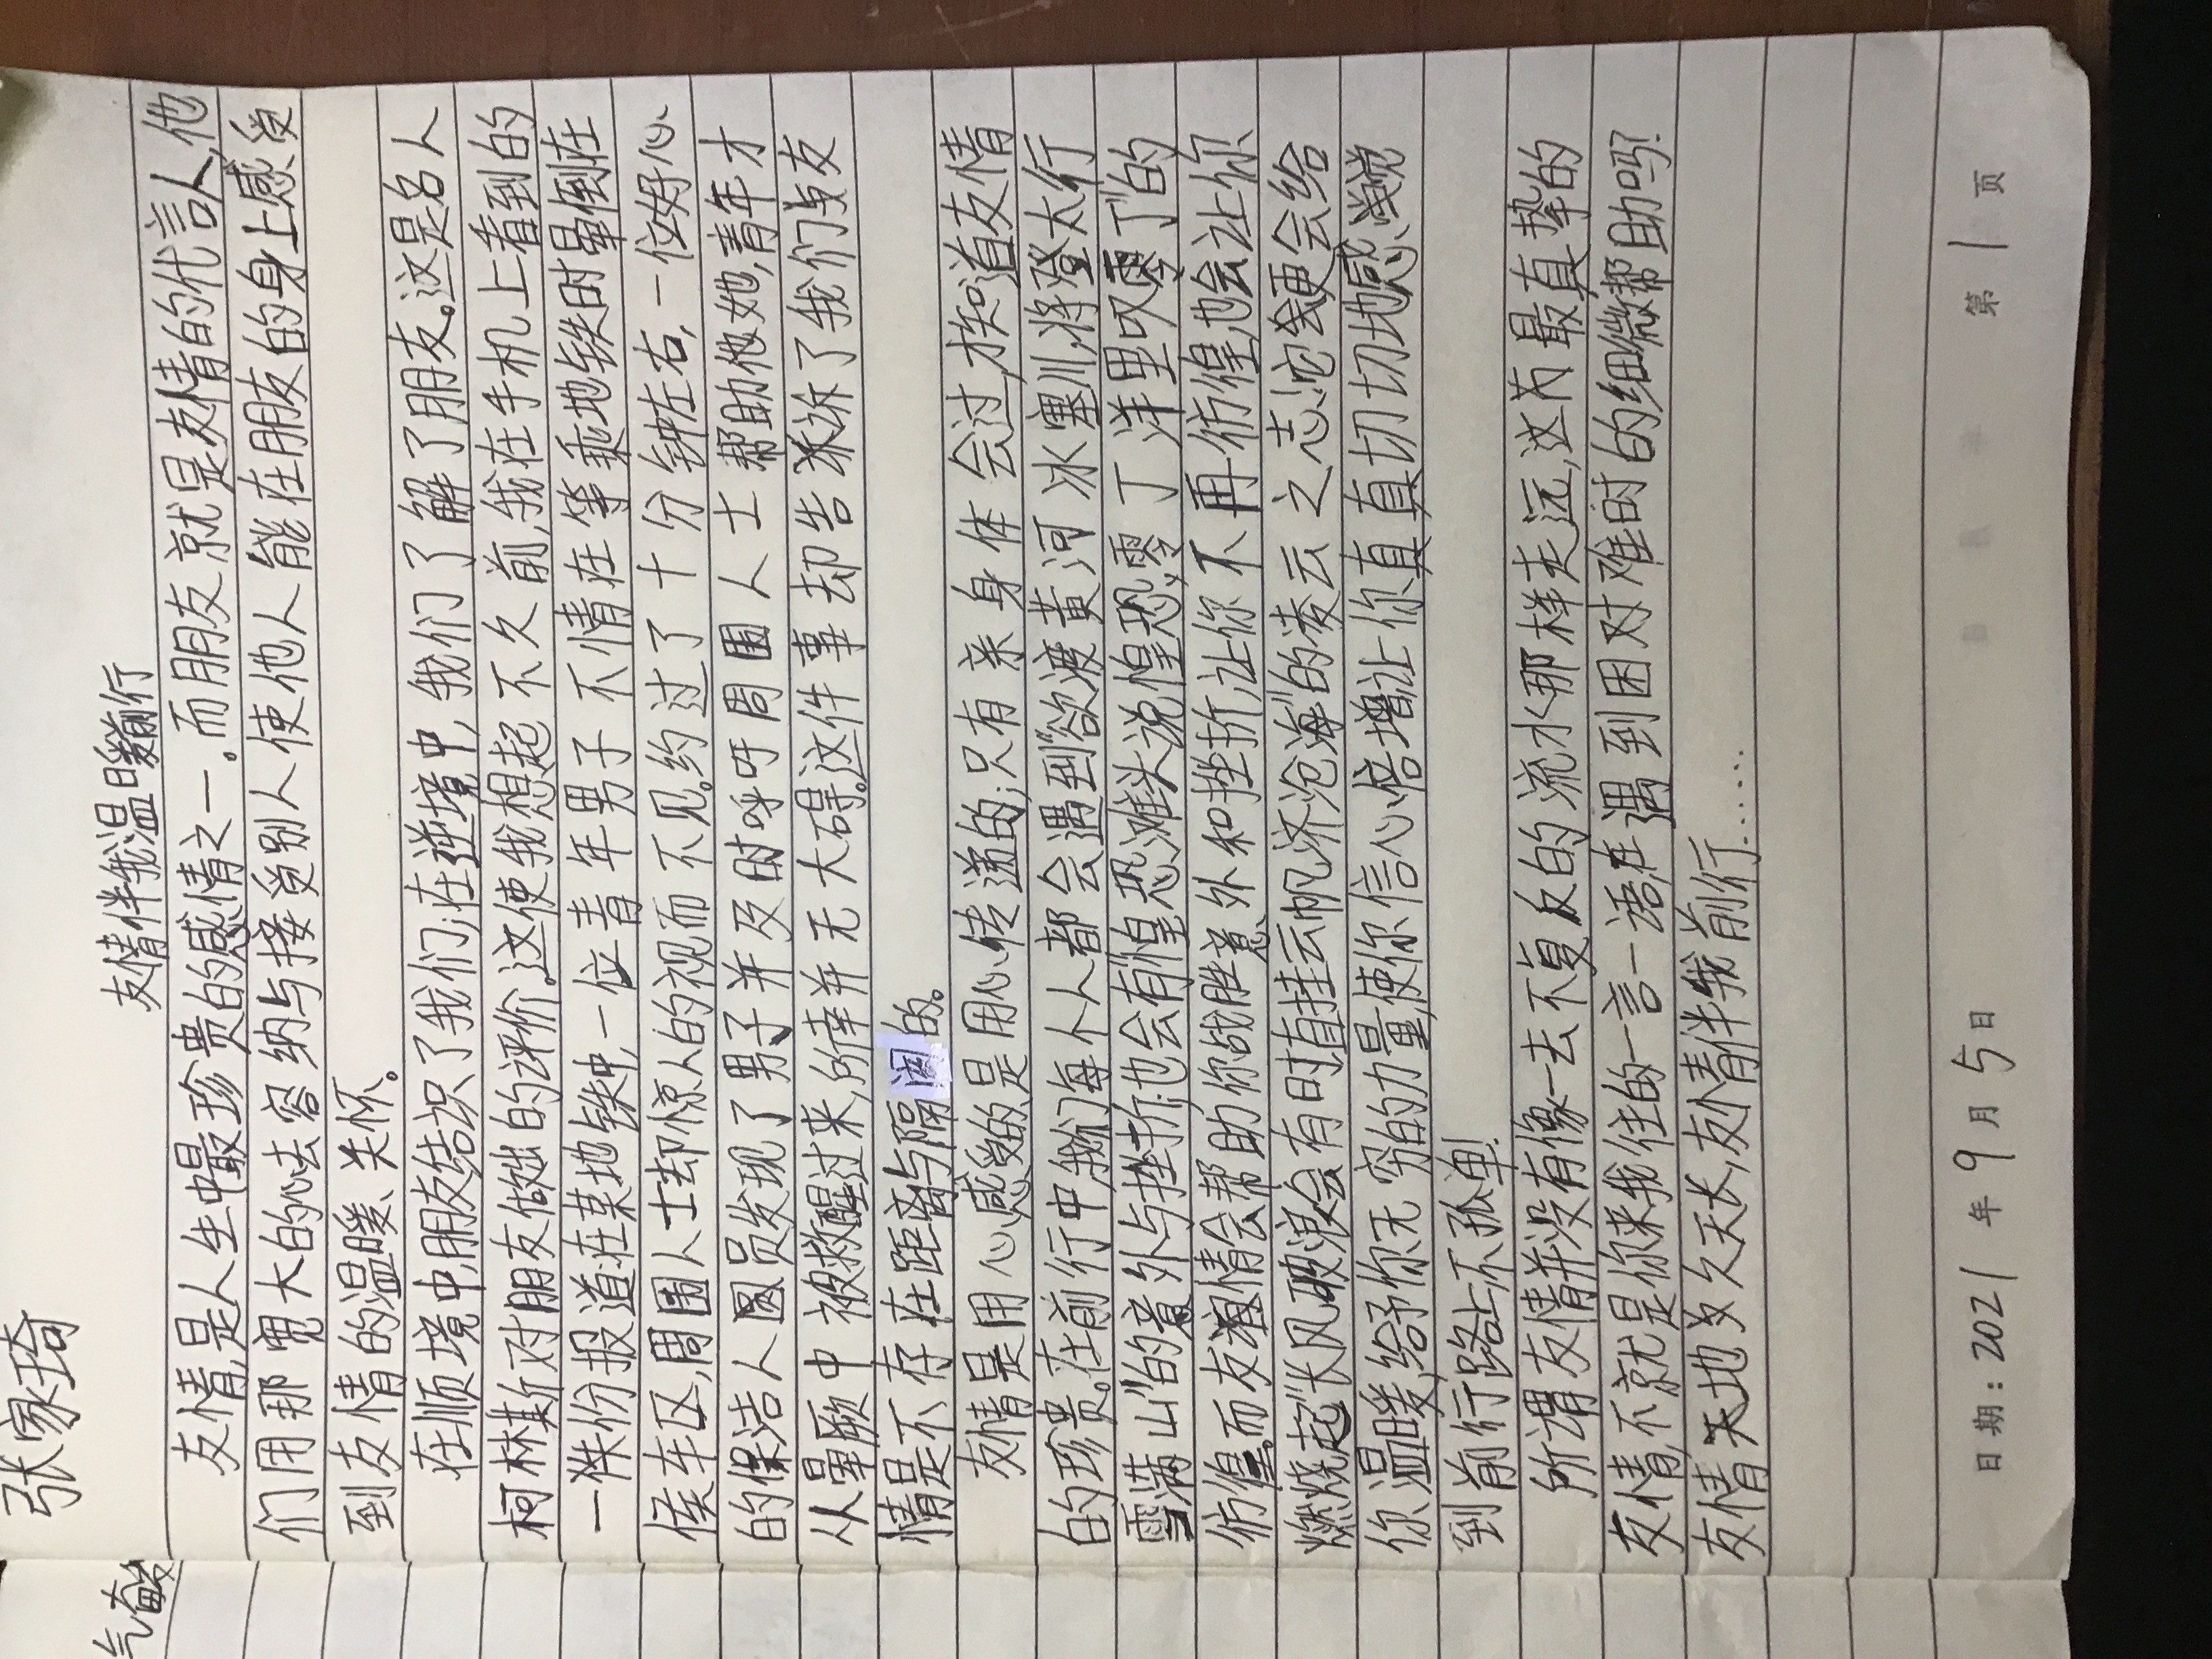 张家琦
友情伴我温暖前行
友情,是人生中最珍贵的感情之一。而朋友就是友情的代言人,他
们用那宽大的心去容纳与接受别人使他人能在朋友的身上感受
到友情的温暖、关怀。
在顺境中,朋友结识了我们;在逆境中,我们了解了朋友。这是名人
柯林斯对朋友做出的评价。这使我想起不久前,我在手机上看到的
一份报道:在某地铁中,一位青年男子不情在等乘地铁时晕倒在
侯车区,周围人士却惊人的视而不见。约过了十分钟左右,一位好心
的保洁人员发现了男子并及时呼吁周围人士帮助他,青年才
从晕厥中被救醒过来,所幸并无大碍。这件事却告诉了我们友
情是不存在距离与隔阂的。
友情是用心感受的,是用心传递的,只有亲身体会过,才知道友情
的珍贵。在前行中,我们每个人都会遇到“欲渡黄河冰塞川,将登太行
雪满山”的意外与挫折;也会有“惶恐滩头说惶恐,零丁洋里叹零丁”的
彷徨。而友情会帮助你战胜意外和挫折,让你不再彷徨,也会让你
燃烧起“长风破浪会有时,直挂云帆济沧海”的凌云之志,它更会给
你温暖,给予你无穷的力量,使你信心倍增,让你真真切切地感觉
到前行路上不孤单!
所谓友情并没有像一去不复反的流水那样走远,这芮最真挚的
友情,不就是你来我往的一言一语,在遇到困难时的细微帮助吗?
友情天地久天长,友情伴我前行……
日期:2021年9月5日
第1页